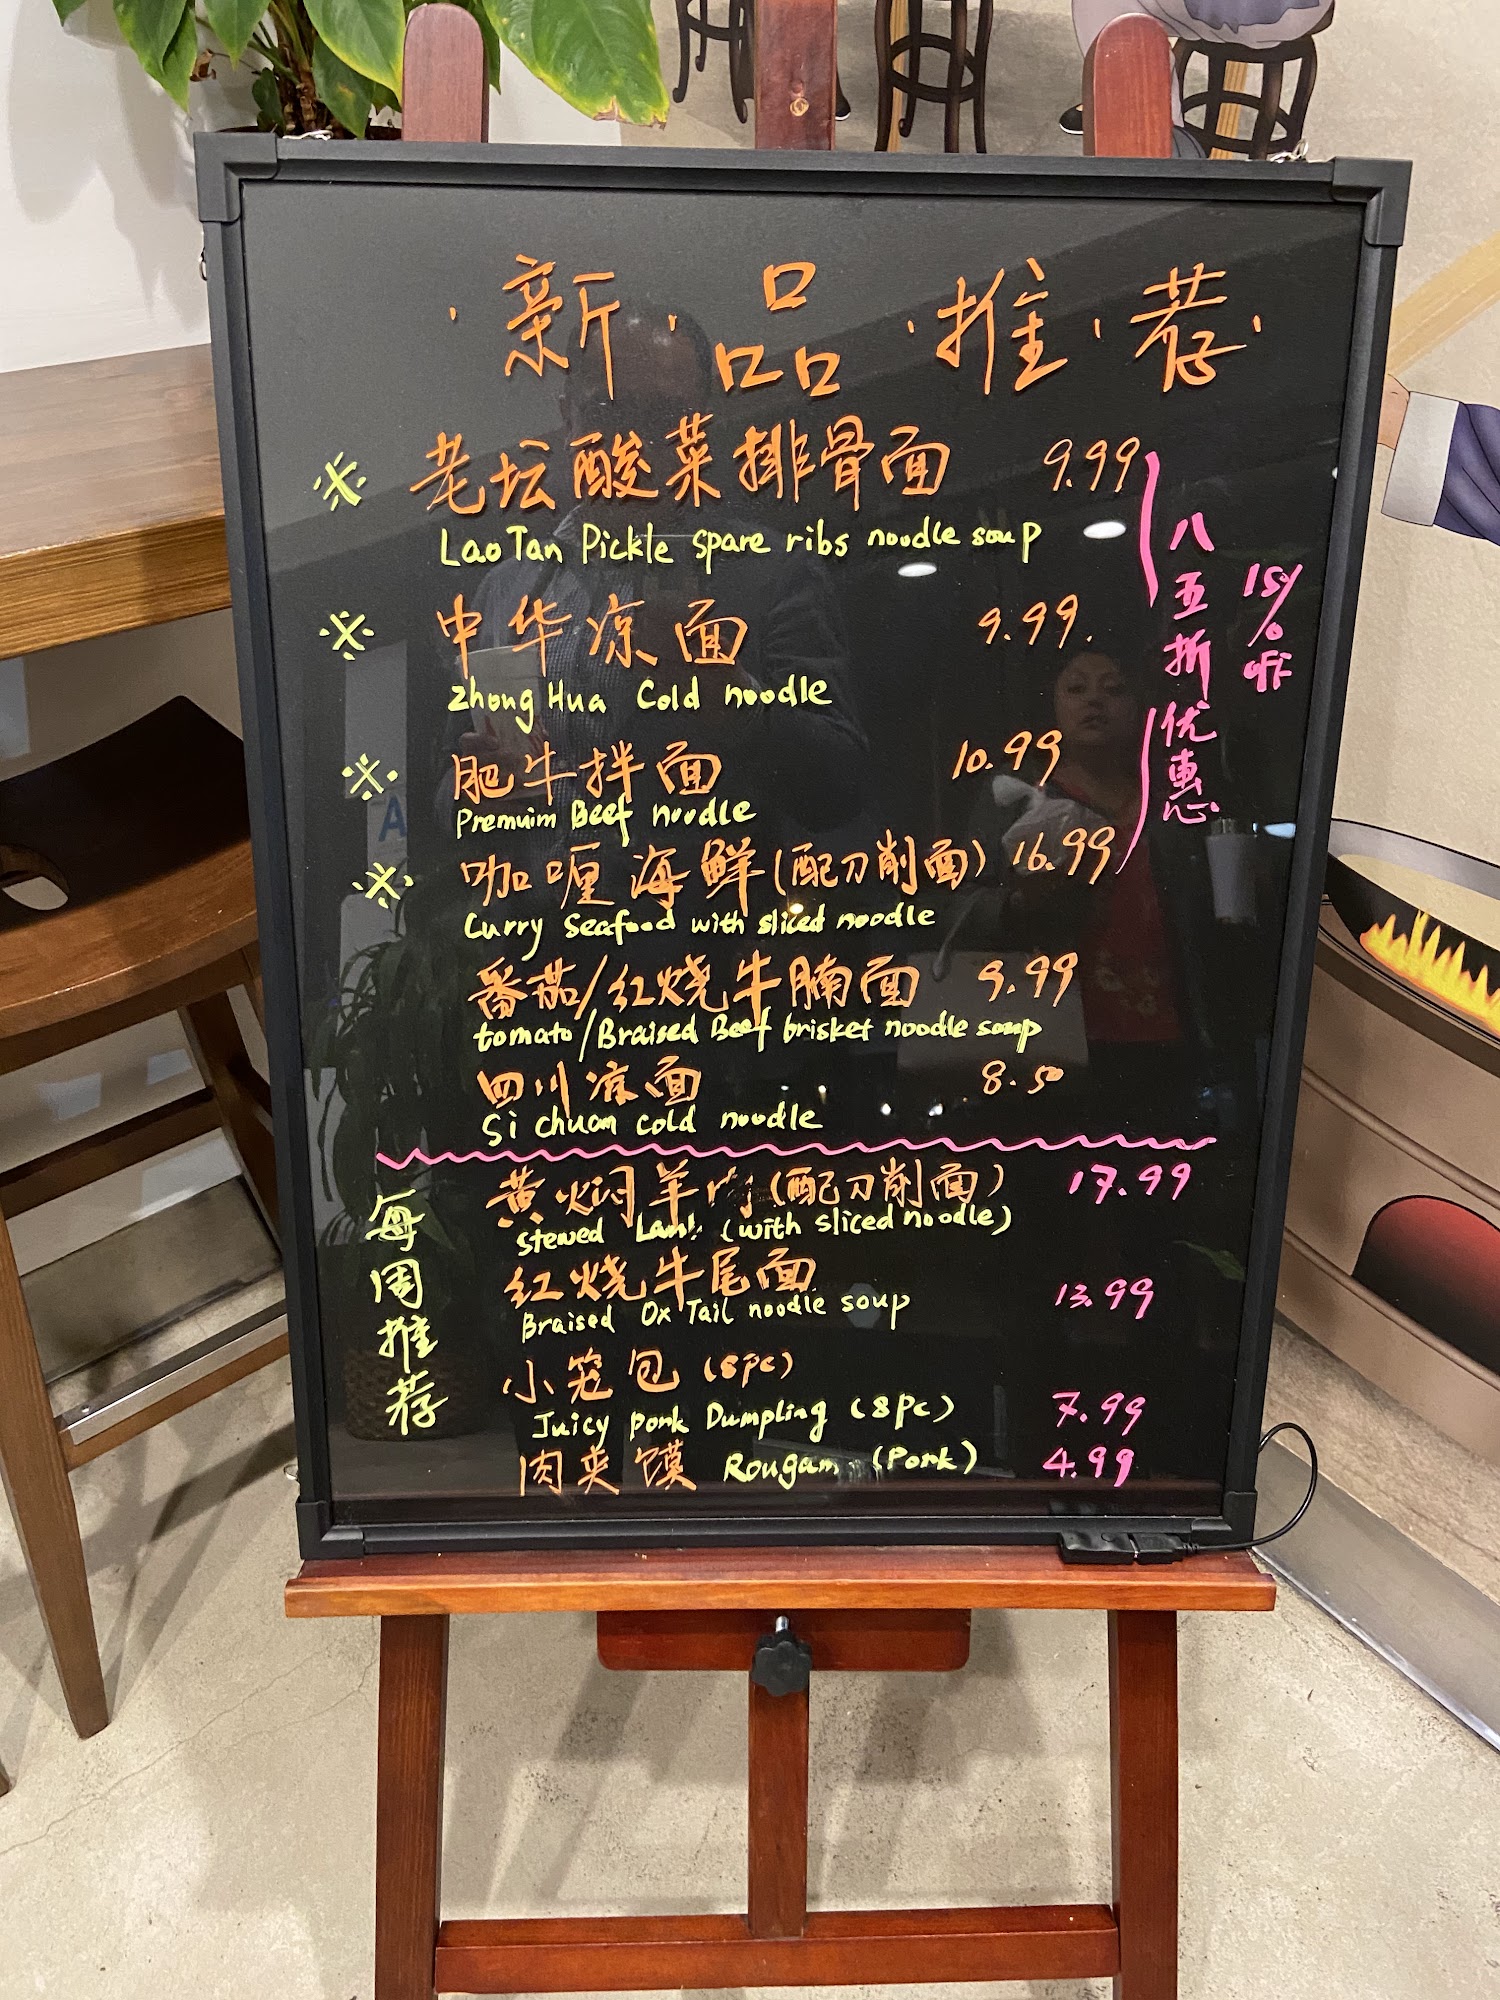 新品推荐
※ 老坛酸菜排骨面 9.99
LaoTan Pickle spare ribs noodle soup
※ 中华凉面 9.99.
ZhongHua Cold noodle
※ 肥牛拌面 10.99
Premuim Beef noodle
※ 咖喱海鲜(配刀削面) 16.99
Curry Seafood with sliced noodle
八五折优惠
15% off
番茄/红烧牛腩面 9.99
tomato/Braised Beef brisket noodle soup
四川凉面 8.50
Si chuan cold noodle
每周推荐
黄焖羊肉(配刀削面) 17.99
Stewed Lamb (with sliced noodle)
红烧牛尾面
Braised Ox Tail noodle soup 13.99
小笼包 (8pc)
Juicy Pork Dumpling (8Pc) 7.99
肉夹馍 Rougam (Pork) 4.99
A